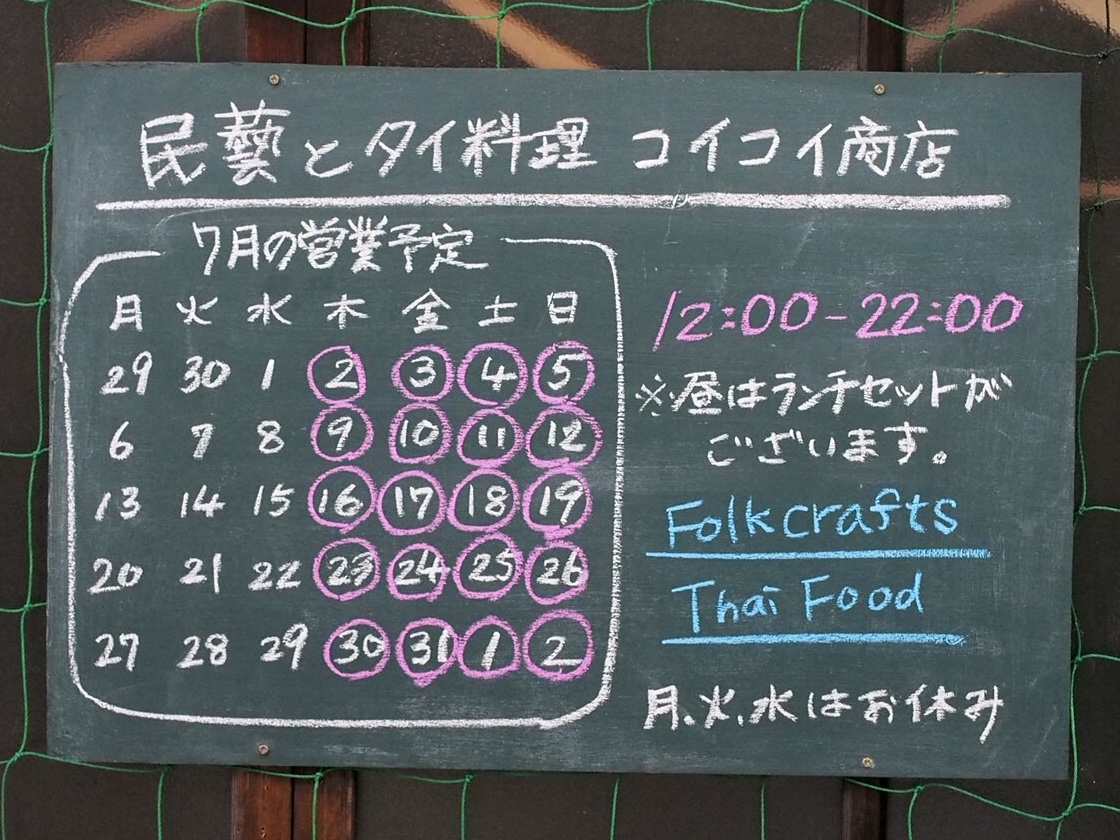 民藝とタイ料理 コイコイ商店
7月の営業予定
月 火 水 木 金 土 日
29 30 1 2 3 4 5
6 7 8 9 10 11 12
13 14 15 16 17 18 19
20 21 22 23 24 25 26
27 28 29 30 31 1 2
12:00-22:00
※昼はランチセットが
ございます。
Folkcrafts
Thai Food
月.火.水はお休み